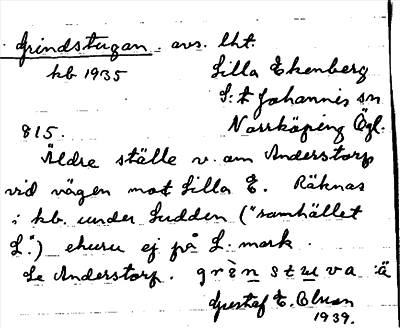 Grindstugan. avs. lht.
kb 1935 Lilla Ekenberg
S:t Johannis sn
815. Norrköping Ögl.
Äldre ställe v. om Anderstorp
vid vägen mot Lilla E. Räknas
i kb. under Sudden ("samhället
S.") ehuru ej på S. mark.
Se Anderstorp. grènstuva :ä
Gustaf E. Blman
1939.